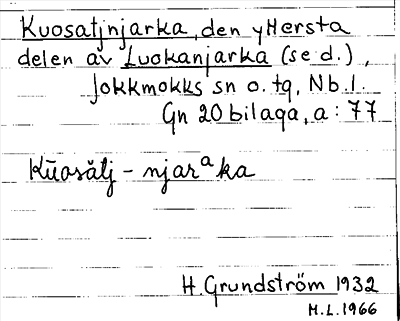 Kuosatjnjarka, den yttersta
delen av Luokanjarka (se d.),
Jokkmokks sn o. tg, Nb. l.
Gn 20 bilaga, a: 77
Kūosătj - njarᵃka
H. Grundström 1932
H.L. 1966